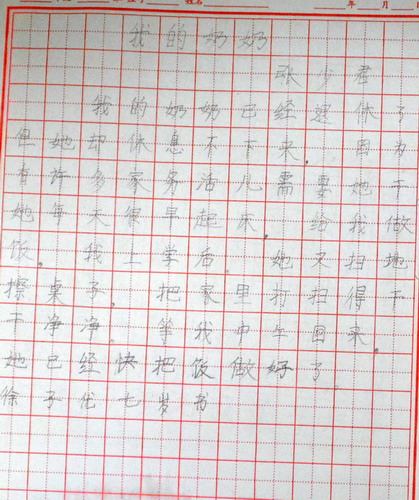 姓名 年 月
我的奶奶
张少君
我的奶奶已经退休了
但她却休息不下来。因为
有许多家务活儿需要她干
她每天很早起床,给我做
饭。我上学后,她又扫地
擦桌子,把家里打扫得干
干净净。等我中午回来,
她已经快把饭做好了
徐子优七岁书